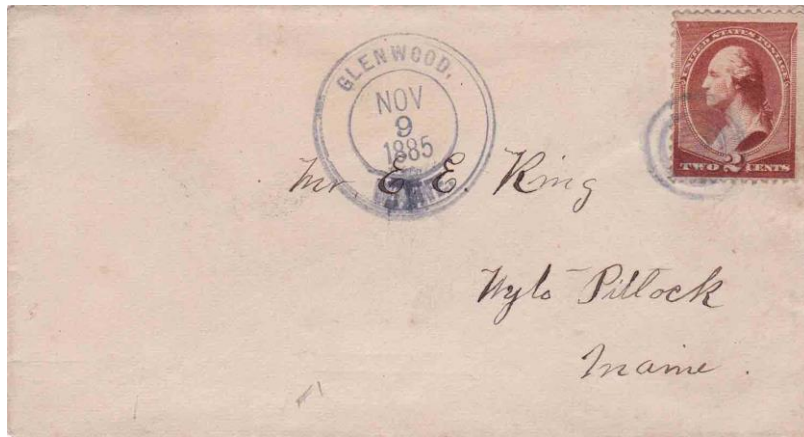 GLENWOOD,
NOV
9
1885
UNITED STATES POSTAGE
TWO 2 CENTS
Mr. E. E. King
Wyto Pitlock
Maine.